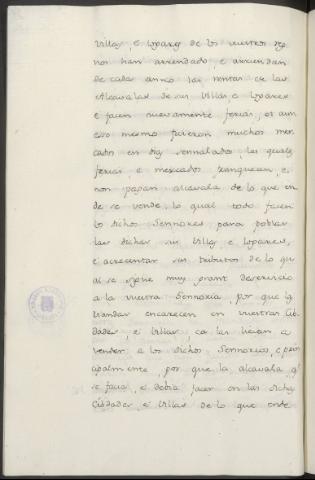 Villas, e logares de los vuestros reg
nos han arrendado, e arriendan
de cada anno las rentas de las
Alcavalas de sus Villas, e logares
e facen nuevamente ferias, et aun
eso mesmo ficieron muchos mer
cados en dias sennalados, las quales
ferias, e mercados franquean, e
non pagan alcavala de lo que en
de se vende, lo qual todo facen
los dichos Sennores para poblar
las dichas sus Villas, e logares,
e acrecentar sus tributos de lo qu
al se sigue muy grant deservicio
a la vuestra Sennoria, por que
viandas encarecen en vuestras Cib
dades, e Villas, ca las lievan a
vender a los dichos Sennorios, e prin
cipalmente, por que la alcavala q
se facia, e debia facer en las dichas
Cibdades, e Villas de lo que ende